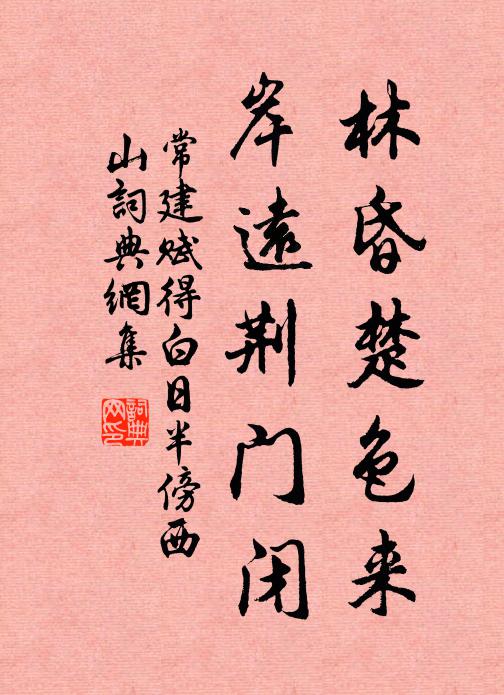 林昏楚色来
岸遠荆门闭
常建赋得白日半傍西
山詞典網集
詞典
网印